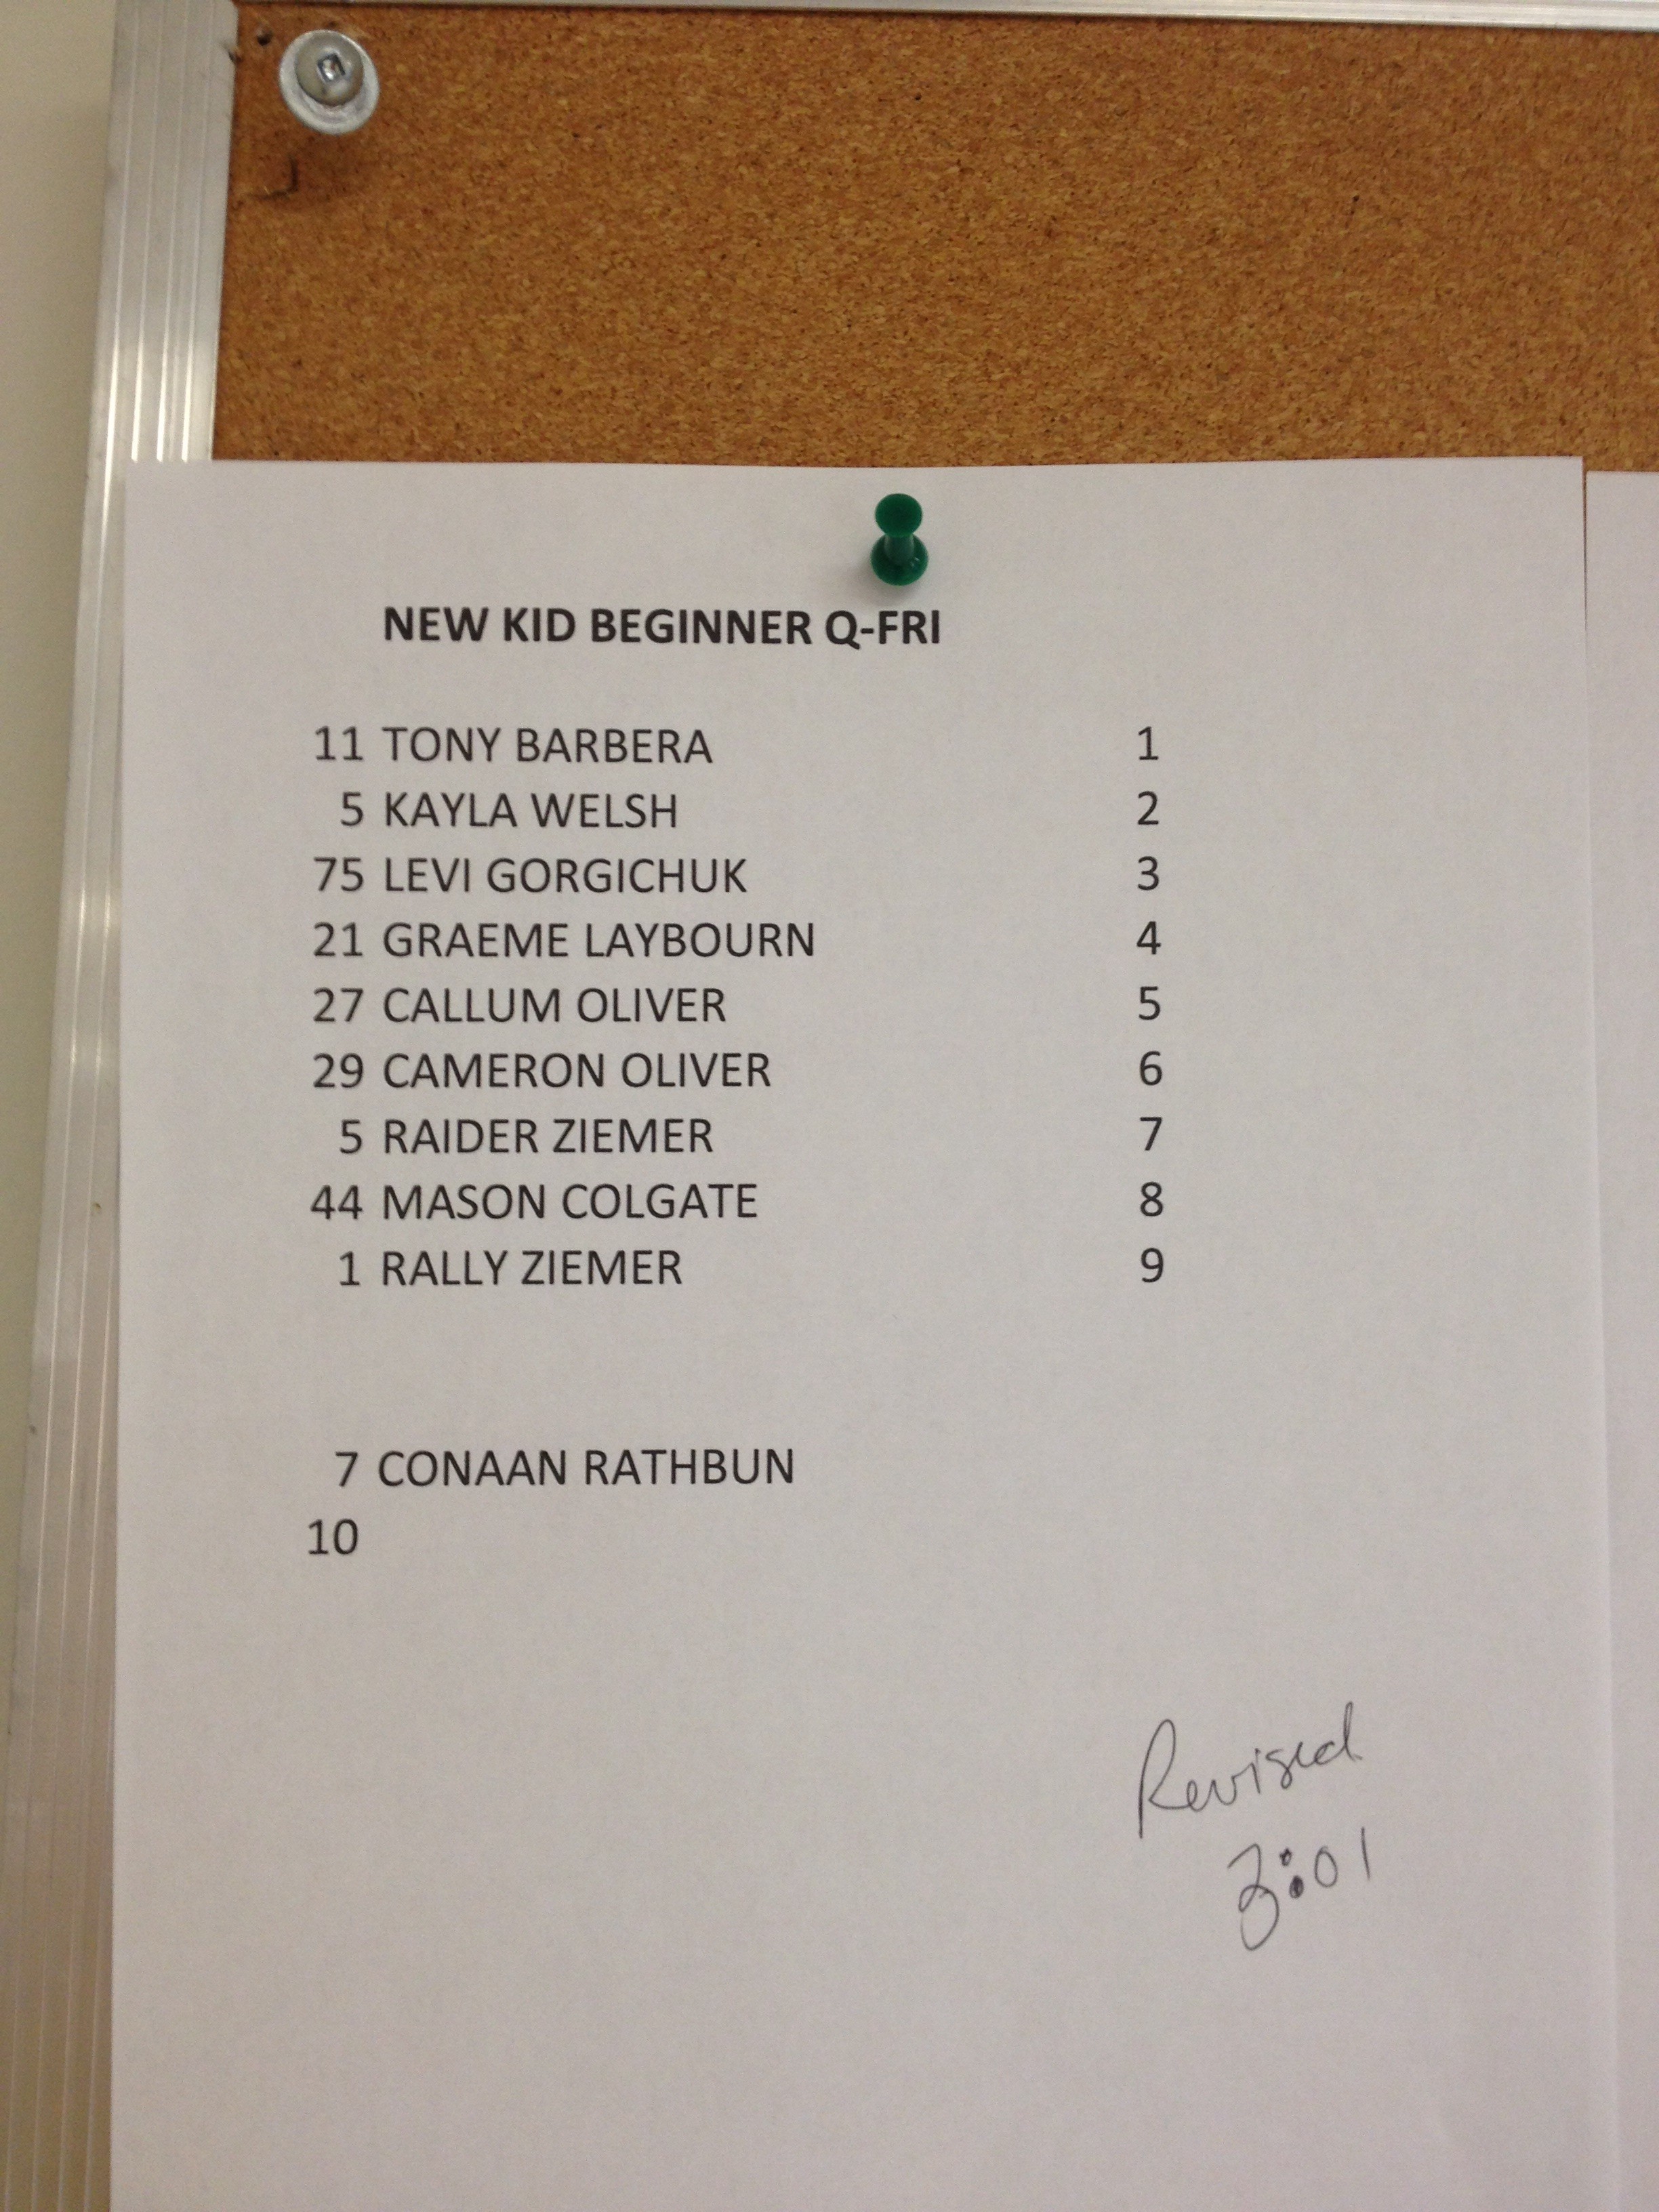 NEW KID BEGINNER Q-FRI
11 TONY BARBERA 1
5 KAYLA WELSH 2
75 LEVI GORGICHUK 3
21 GRAEME LAYBOURN 4
27 CALLUM OLIVER 5
29 CAMERON OLIVER 6
5 RAIDER ZIEMER 7
44 MASON COLGATE 8
1 RALLY ZIEMER 9
7 CONAAN RATHBUN
10
Revised
3:01